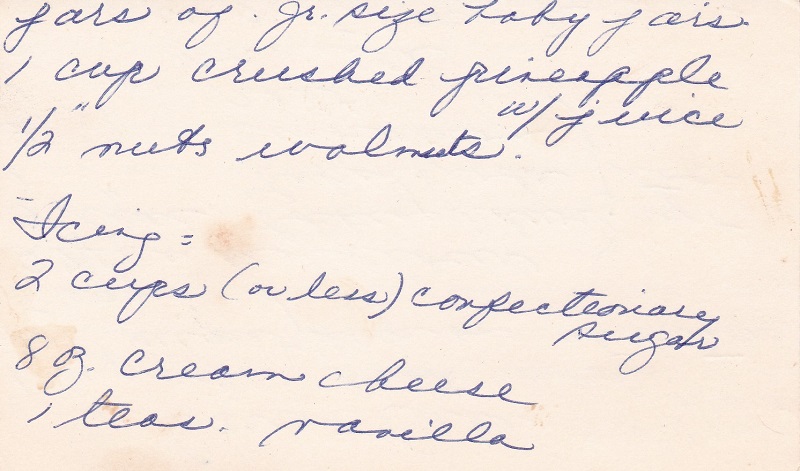 jars of Jr. size baby jars.
1 cup crushed pineapple
w/ juice
1/2 " nuts walnuts.
Icing =
2 cups (or less) confectionary
sugar
8 oz. cream cheese
1 teas. vanilla